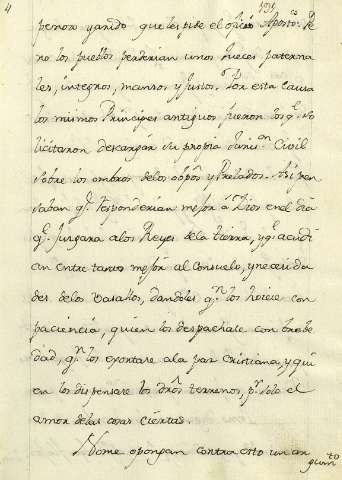 4
penoza y arido que les pide el oficio Aposto.co Pe
no los pueblos perderian unos Jueces paterna
les, integros, mansos y Justos. Por esta causa
los mismos Principes antiguos fueron los q.e so
licitaron descargar su propia Juris.on Civil
sobre los ombros de los obpos y Prelados. Asi pen
saban q.e responderian mejor á Dios en el dia
q.e Jusgara a los Reyes de la tierra, y q.e acudi
an entre tanto mejor al Consuelo, y necesida
des de los Vasallos, dandoles q.n los hoiese con
paciencia, quien los despachase con breve
dad, q.n los exortare a la paz Cristiana, y qui
en los dispensare los dros terrenos, p.r solo el
amor de las cosas Ciertas.
No me opongan contra esto un ar
gum.to